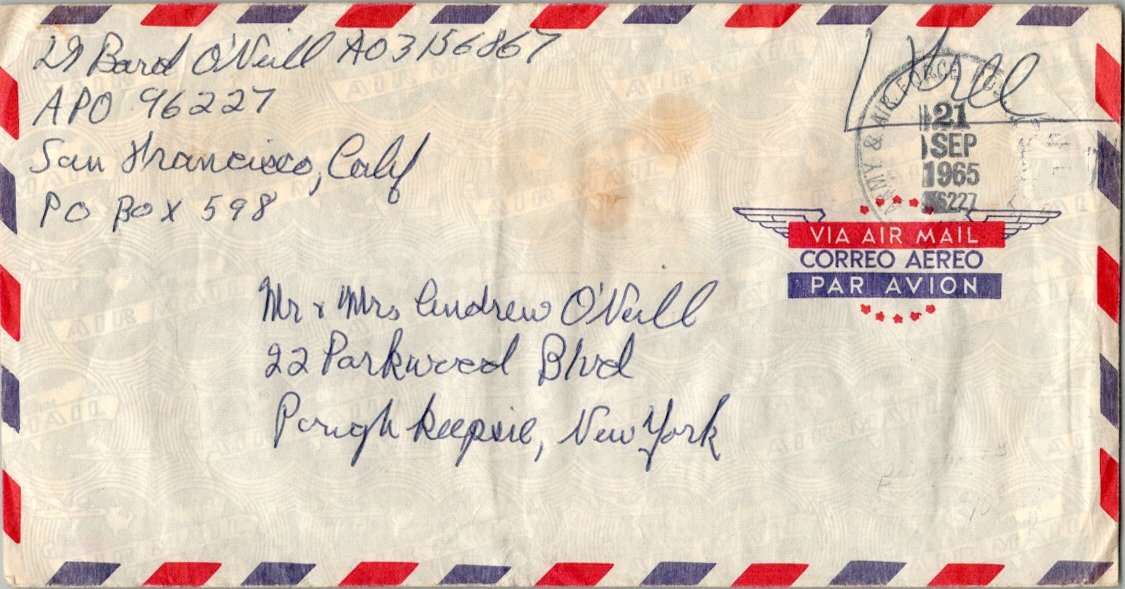 Lt Bard O'Neill AO3156867
APO 96227
San Francisco, Calif
PO Box 598
Free
ARMY & AIR FORCE POS
21
SEP
1965
96227
VIA AIR MAIL
CORREO AEREO
PAR AVION
Mr & Mrs Andrew O'Neill
22 Parkwood Blvd
Poughkeepsie, New York